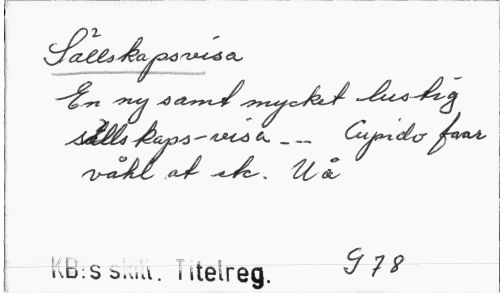 Sällskapsvisa
En ny samt mycket lustig
sällskaps-visa --- Cupido faar
våhl at etc. U å
KB:s skill. Titelreg. G 78